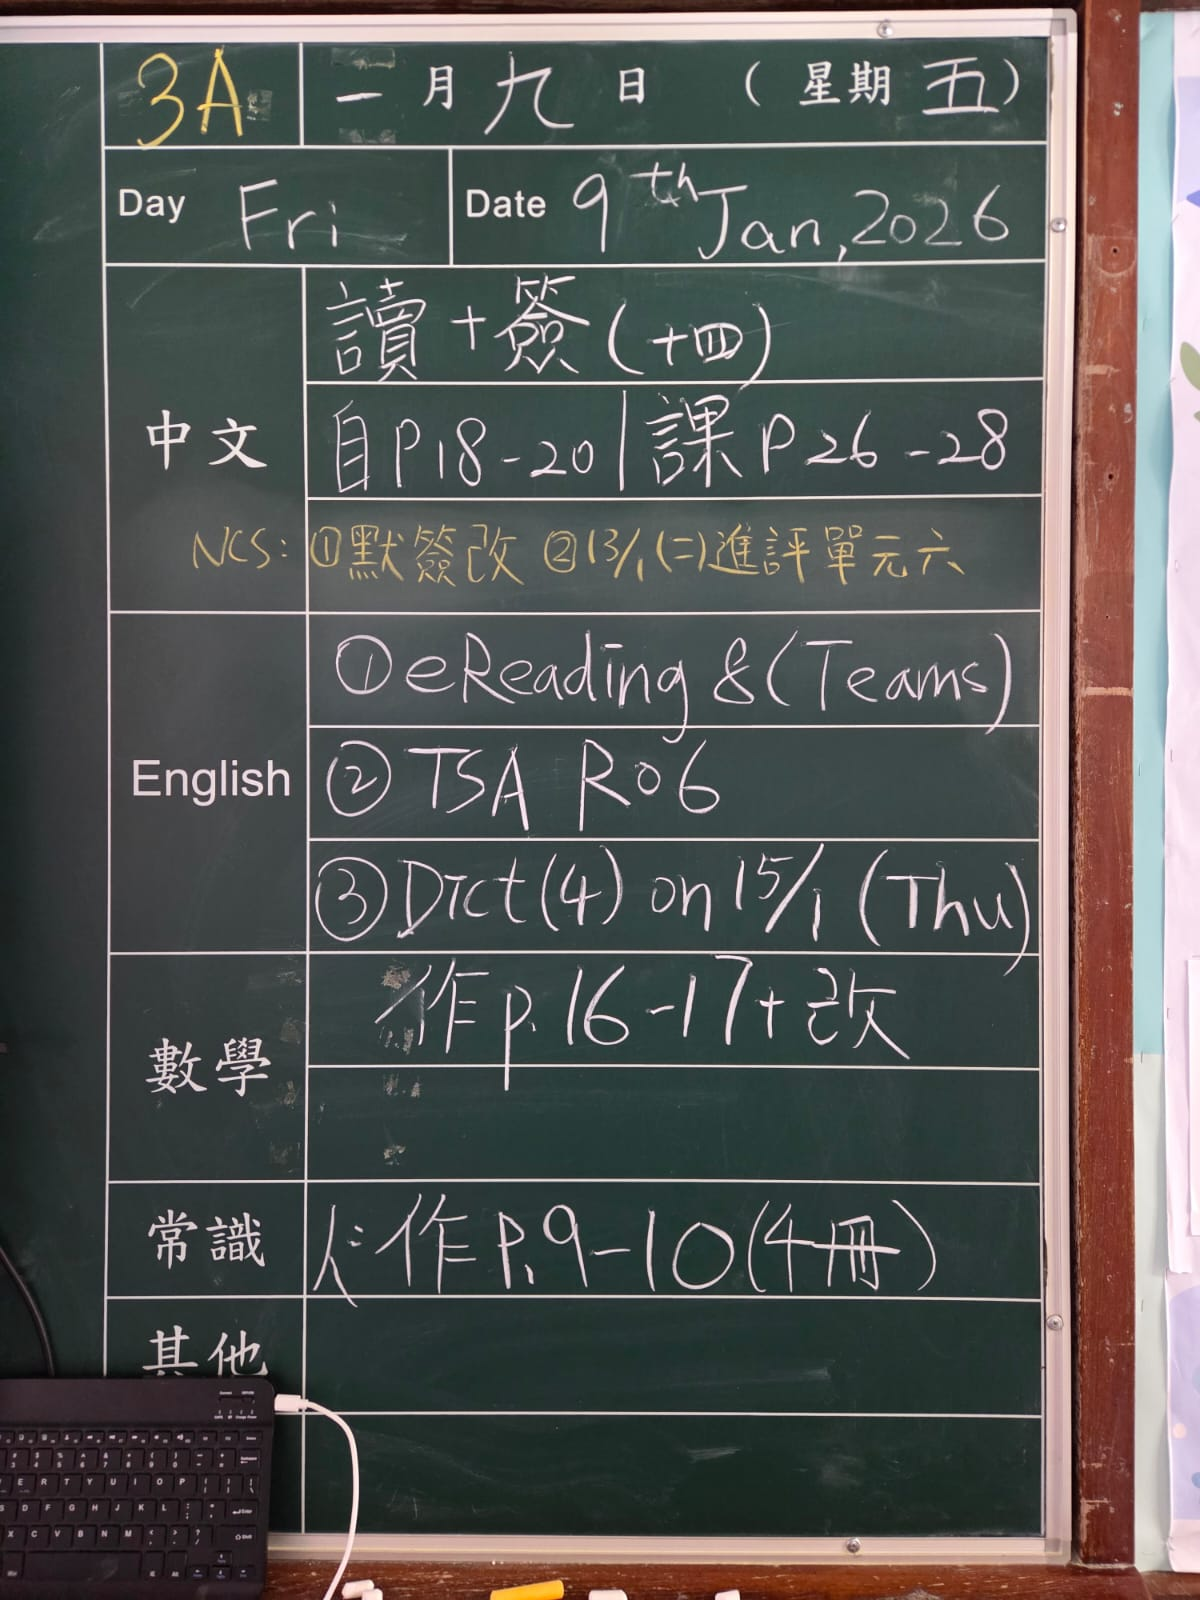 3A 一月九日（星期五）
Day Fri Date 9th Jan, 2026
讀+簽(十四)
中文 自P18-20|課P26-28
NCS: ①默簽改 ②13/1(二)進評單元六
①eReading 8(Teams)
English ②TSA R06
③Dict(4) on 15/1 (Thu)
作p.16-17+改
數學
常識 作P.9-10(4冊)
其他